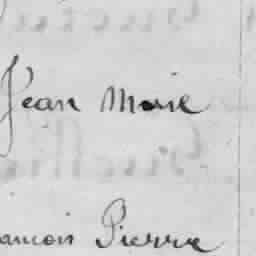 Jean Marie
ancois Pierre